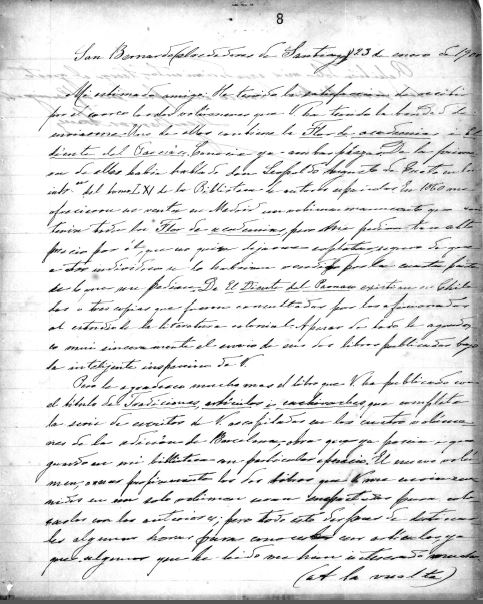 8
San Bernardo (alrededores de Santiago) 23 de enero de 1900
Mi estimado amigo: He tenido la satisfaccion de recibir
por el correo los dos volúmenes que V. ha tenido la bondad de
enviarme. Uno de ellos contiene la Flor de academias i El
diente del Parnaso. Conocia ya ambas piezas. De la primera
de ellas habia hablado don Leopoldo Augusto de Cueto en la
del tomo LXI de la Biblioteca de autores españoles. En 1860 me
ofrecieron en venta en Madrid un volúmen manuscrito que con
tenia toda la Flor de academias, pero
precio por él que no quise
a por la cuarta parte
de lo que me pedian. De El Diente del Parnaso existian en Chile
dos o tres copias que fueron consultadas por los aficionados
al estudio de la literatura colonial. A pesar de todo le agradez
co mui sinceramente el envio de esos dos libros publicados bajo
la intelijente inspeccion de V.
Pero le agradezco mucho mas el libro que V. ha publicado con
el titulo de Tradiciones, artículos i cachivaches que completa
la serie de escritos de V. recopilados en los cuatro volúme
nes de la edicion de Barcelona, obra que ya poseia i que
guardo en mi biblioteca con particular aprecio. El nuevo volú
men, o mas propiamente los dos libros que
nidos en un solo volúmen para colo
carlos con los anteriores; pero todo esto despues de destinar
les algunas horas para conocer artículos, ya
que algunos que he leido me han interesado mucho.
(A la vuelta)